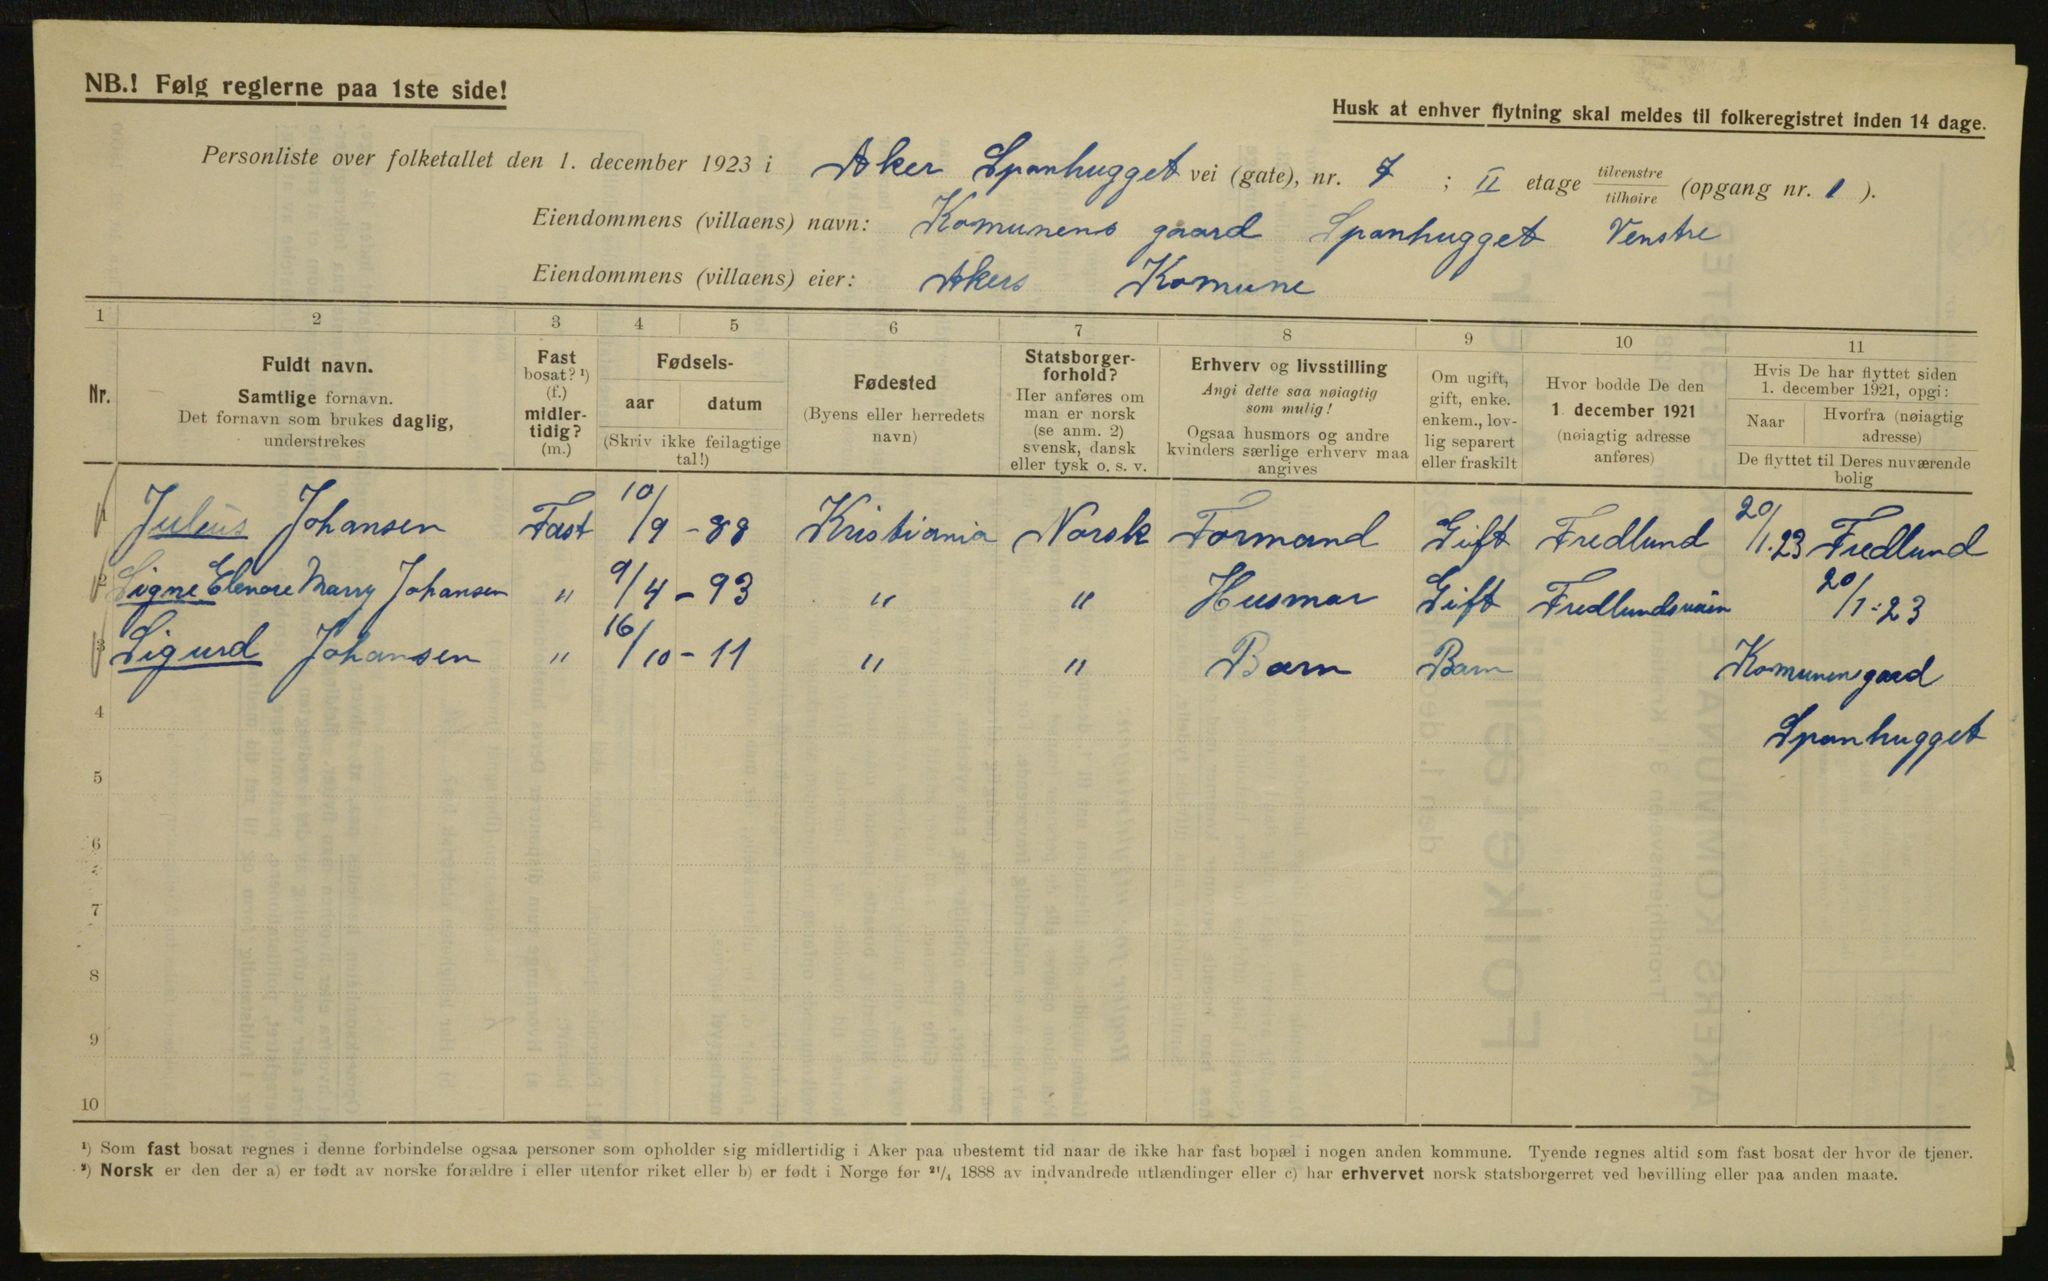 NB.! Følg reglerne paa 1ste side!
Husk at enhver flytning skal meldes til folkeregistret inden 14 dage.
Personliste over folketallet den 1. december 1923 i Aker Spanhugget vei (gate), nr. 7 ; II etage tilvenstre / tilhøire (opgang nr. 1 ).
Eiendommens (villaens) navn: Komunens gaard Spanhugget Venstre
Eiendommens (villaens) eier: Akers Komune
1 2 3 4 5 6 7 8 9 10 11
Nr.
Fuldt navn.
Samtlige fornavn.
Det fornavn som brukes daglig,
understrekes
Fast
bosat? ¹)
(f.)
midler-
tidig?
(m.)
Fødsels-
aar datum
(Skriv ikke feilagtige
tal!)
Fødested
(Byens eller herredets
navn)
Statsborger-
forhold?
Her anføres om
man er norsk
(se anm. 2)
svensk, dansk
eller tysk o. s. v.
Erhverv og livsstilling
Angi dette saa nøiagtig
som mulig!
Ogsaa husmors og andre
kvinders særlige erhverv maa
angives
Om ugift,
gift, enke.
enkem., lov-
lig separert
eller fraskilt
Hvor bodde De den
1. december 1921
(nøiagtig adresse
anføres)
Hvis De har flyttet siden
1. december 1921, opgi:
Naar
Hvorfra (nøiagtig
adresse)
De flyttet til Deres nuværende
bolig
1 Julius Johansen Fast 10/9 - 88 Kristiania Norsk Formand Gift Fredlund 20/1. 23 Fredlund
2 Signe Elenore Marry Johansen " 9/4 - 93 " " Husmor Gift 20/1 - 23
3 Sigurd Johansen " 16/10 - 11 " " Barn Barn Komunensgaard
4 Spanhugget
5
6
7
8
9
10
¹) Som fast bosat regnes i denne forbindelse ogsaa personer som opholder sig midlertidig i Aker paa ubestemt tid naar de ikke har fast bopæl i nogen anden kommune. Tyende regnes altid som fast bosat der hvor de tjener.
²) Norsk er den der a) er født av norske forældre i eller utenfor riket eller b) er født i Norge før ²¹/₄ 1888 av indvandrede utlændinger eller c) har erhvervet norsk statsborgerret ved bevilling eller paa anden maate.